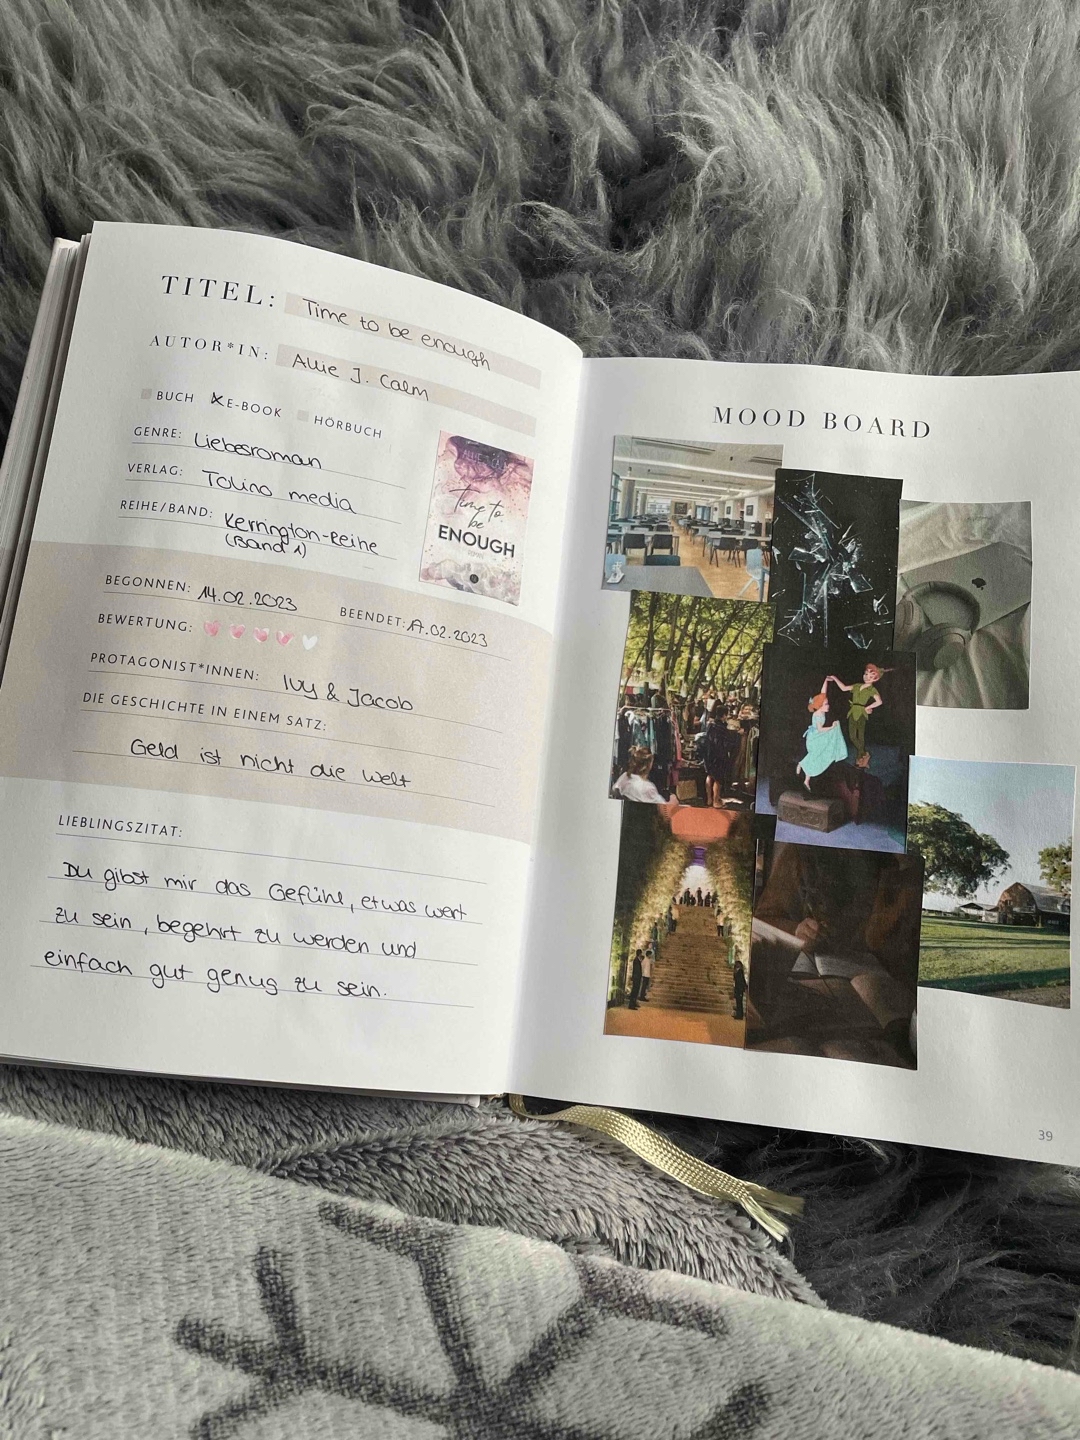 TITEL: Time to be enough
AUTOR*IN: Allie J. Calm
BUCH E-BOOK HÖRBUCH
GENRE: Liebesroman
VERLAG: Tolino media
REIHE/BAND: Kerrington-Reihe
(Band 1)
Time to
be
ENOUGH
BEGONNEN: 14.02.2023 BEENDET: 17.02.2023
BEWERTUNG:
PROTAGONIST*INNEN: Ivy & Jacob
DIE GESCHICHTE IN EINEM SATZ:
Geld ist nicht die Welt
LIEBLINGSZITAT:
Du gibst mir das Gefühl, etwas wert
zu sein, begehrt zu werden und
einfach gut genug zu sein.
MOOD BOARD
39